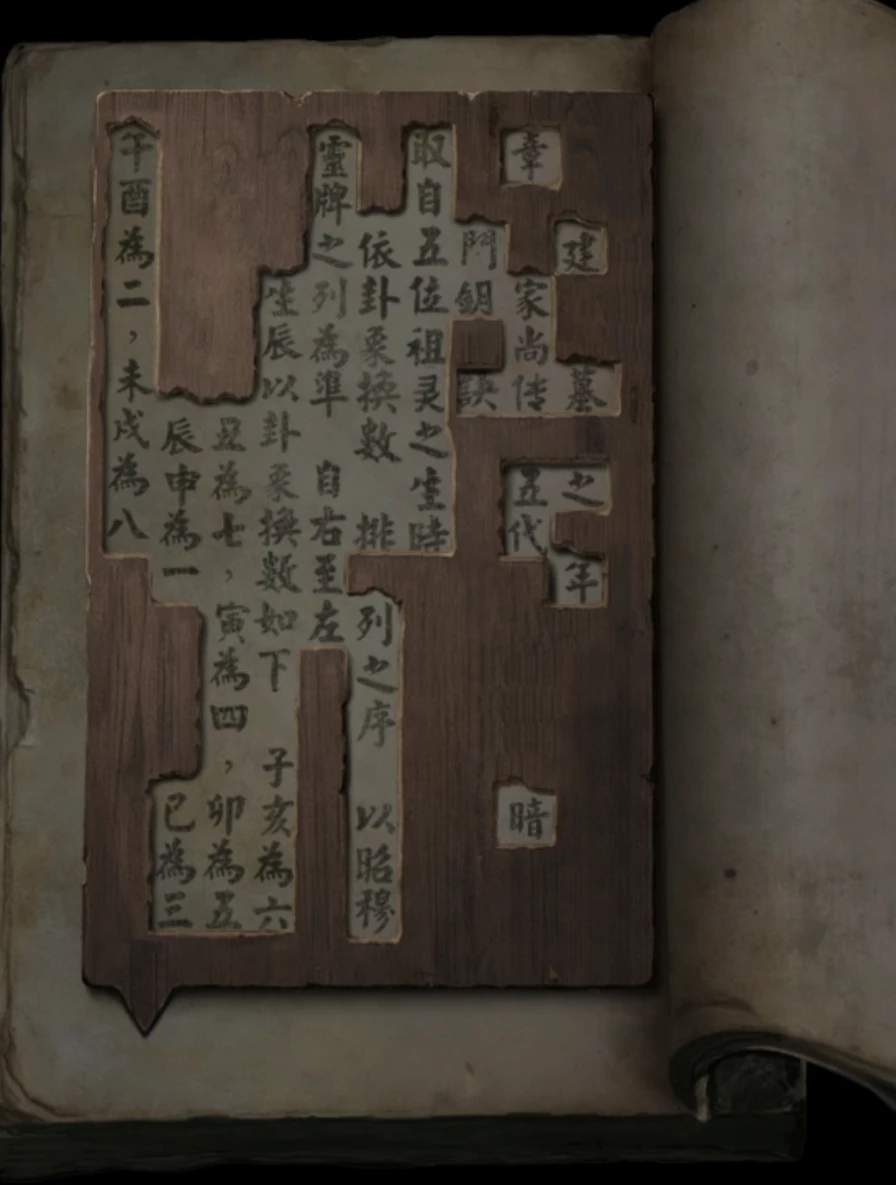 建 墓 之 年
章 家尚传 五代 暗
門鑰 訣
取自五位祖灵之生時
依卦象換數 排列之序 以昭穆
靈牌之列為準 自右至左
生辰以卦象換數如下 子亥為六
丑為七，寅為四，卯為五
辰申為一 巳為三
午酉為二，未戌為八